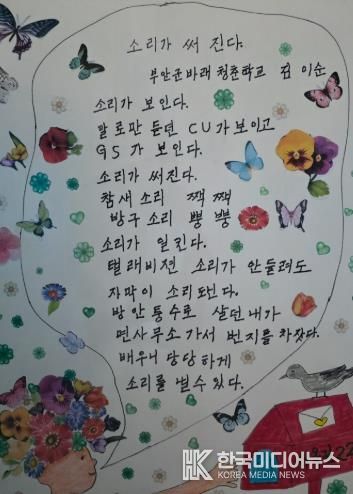 소리가 써 진다.
부안군바래 청춘학교 김 이순
소리가 보인다.
말로만 듣던 CU가 보이고
GS 가 보인다.
소리가 써진다.
참새 소리 짹 짹
방구 소리 뿡 뿡
소리가 읽킨다.
텔래비젼 소리가 안들려도
자막이 소리된다.
방안 퉁수로 살던 내가
면사무소 가서 번지를 차잤다.
배우니 당당하게
소리를 낼수 있다.
HK 한국미디어뉴스
KOREA MEDIA NEWS